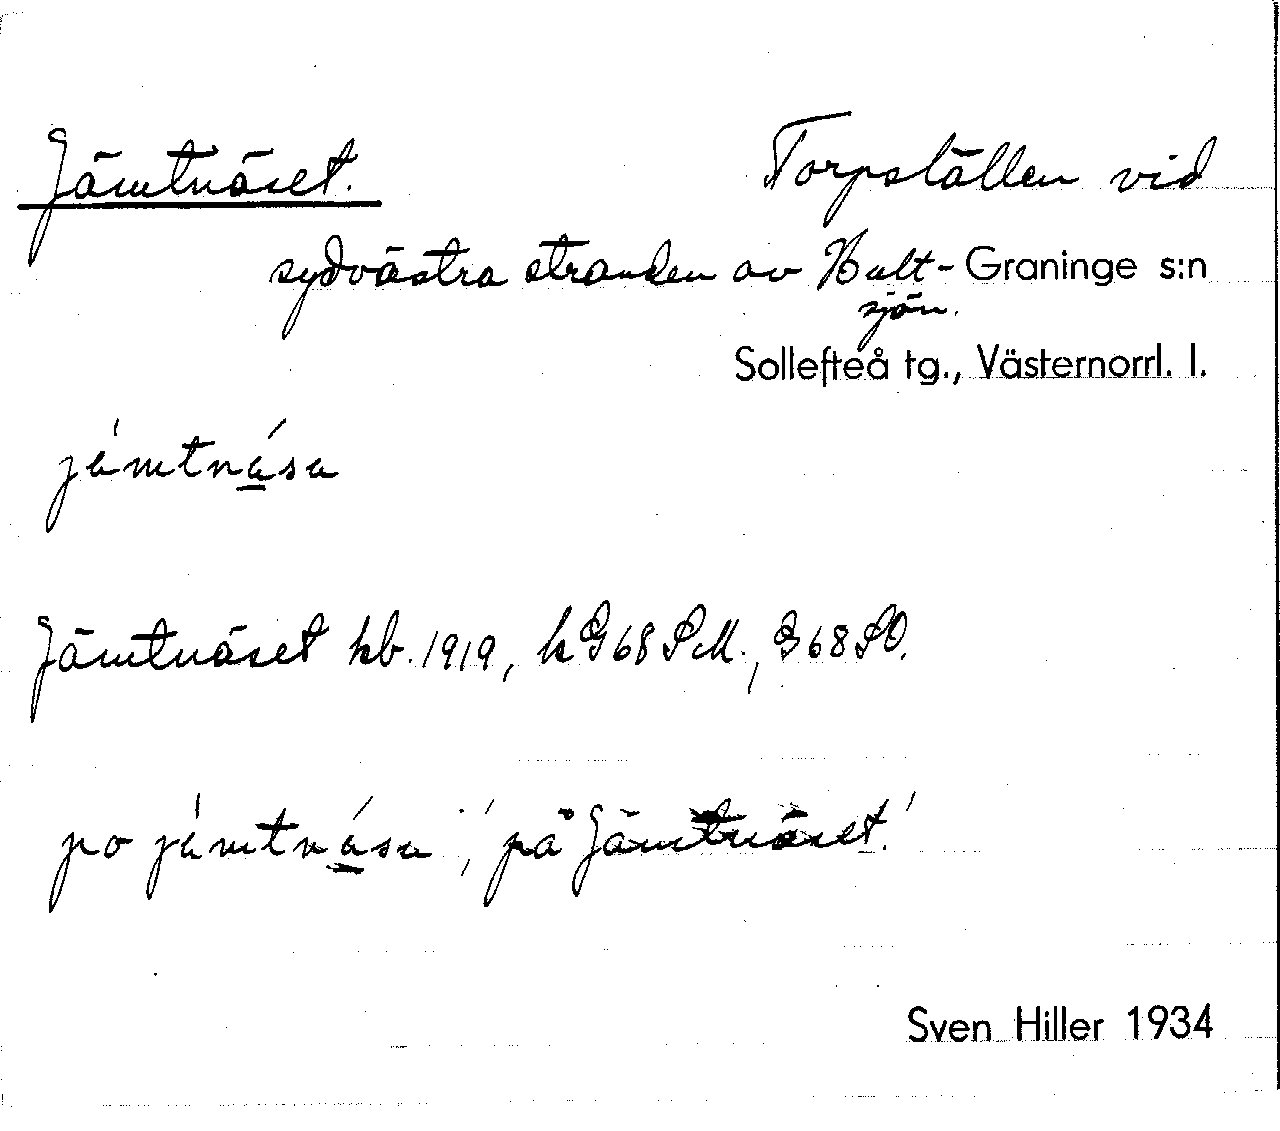 Jämtnäset. Torpställen vid
sydvästra stranden av Hult- Graninge s:n
sjön.
Sollefteå tg., Västernorrl. l.
jámtnása
Jämtnäset kb. 1919, k G 68 SM., G 68 SO.
po jámtnása ; 'på Jämtnäset.'
Sven Hiller 1934